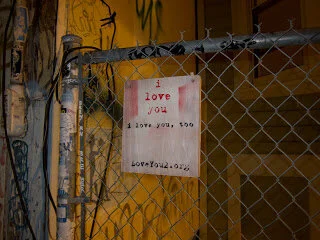 i
love
you
i love you, too
LoveYou2.org